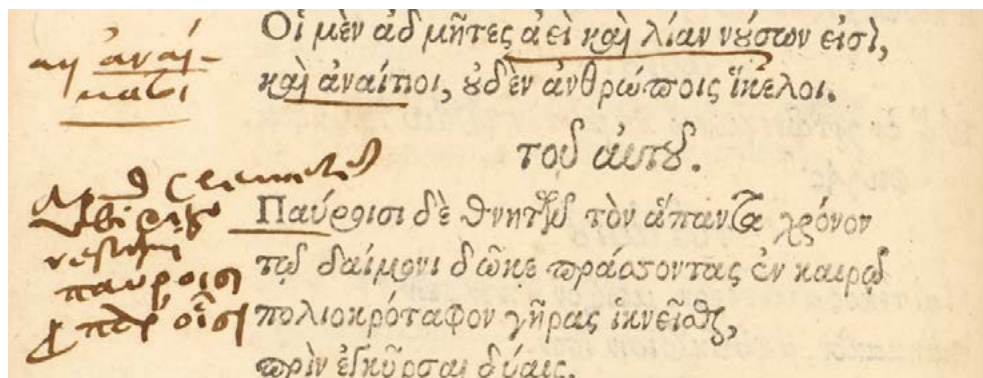 ἀναί-
Οἱ μὲν ἀδμῆτες ἀεὶ καὶ λίαν νούσων εἰσὶ,
καὶ ἀναίτιοι, ȣ̓δὲν ἀνθρώποις ἴκελοι.
τοῦ αὐτȣ͂.
Παύροισι δὲ θνητῶν τὸν ἅπαντα χρόνον
τῷ δαίμονι δῶκε πράσσοντας ἐν καιρῷ
παύροισι
πολιοκρόταφον γῆρας ἱκνεῖσθαι,
πρὶν ἐγκῦρσαι δύαις.